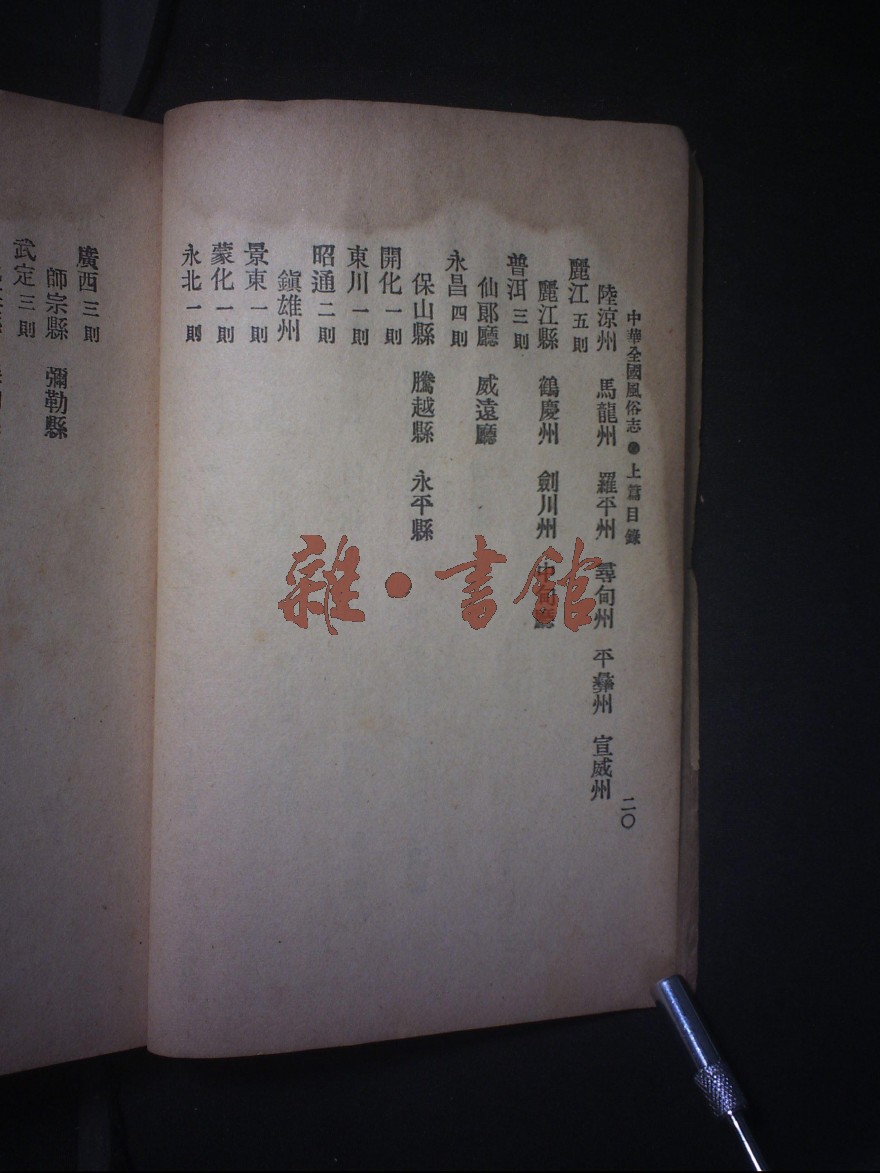 中華全國風俗志●上篇目錄
二〇
陸涼州 馬龍州 羅平州 尋甸州 平彝州 宣威州
麗江五則
麗江縣 鶴慶州 劍川州 中甸廳
普洱三則
仙郞廳 威遠廳
永昌四則
保山縣 騰越縣 永平縣
開化一則
東川一則
昭通二則
鎭雄州
景東一則
蒙化一則
永北一則
廣西三則
師宗縣 彌勒縣
武定三則
雜·書館